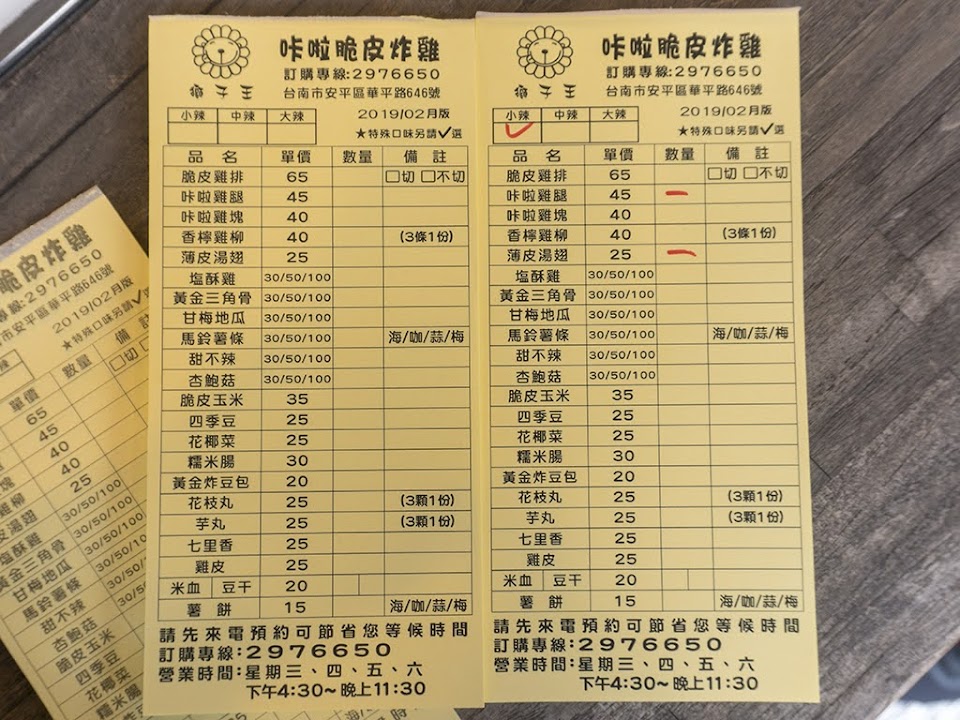 咔啦脆皮炸雞
訂購專線:2976650
獅子王 台南市安平區華平路646號
小辣 中辣 大辣 2019/02月版
★特殊口味另請✓選
品名 單價 數量 備註
脆皮雞排 65 □切 □不切
咔啦雞腿 45
咔啦雞塊 40
香檸雞柳 40 (3條1份)
薄皮湯翅 25
塩酥雞 30/50/100
黃金三角骨 30/50/100
甘梅地瓜 30/50/100
馬鈴薯條 30/50/100 海/咖/蒜/梅
甜不辣 30/50/100
杏鮑菇 30/50/100
脆皮玉米 35
四季豆 25
花椰菜 25
糯米腸 30
黃金炸豆包 20
花枝丸 25 (3顆1份)
芋丸 25 (3顆1份)
七里香 25
雞皮 25
米血 豆干 20
薯餅 15 海/咖/蒜/梅
請先來電預約可節省您等候時間
訂購專線:2976650
營業時間:星期三、四、五、六
下午4:30~晚上11:30
咔啦脆皮炸雞
訂購專線:2976650
獅子王 台南市安平區華平路646號
小辣 中辣 大辣 2019/02月版
✓ ★特殊口味另請✓選
品名 單價 數量 備註
脆皮雞排 65 □切 □不切
咔啦雞腿 45 一
咔啦雞塊 40
香檸雞柳 40 (3條1份)
薄皮湯翅 25 一
塩酥雞 30/50/100
黃金三角骨 30/50/100
甘梅地瓜 30/50/100
馬鈴薯條 30/50/100 海/咖/蒜/梅
甜不辣 30/50/100
杏鮑菇 30/50/100
脆皮玉米 35
四季豆 25
花椰菜 25
糯米腸 30
黃金炸豆包 20
花枝丸 25 (3顆1份)
芋丸 25 (3顆1份)
七里香 25
雞皮 25
米血 豆干 20
薯餅 15 海/咖/蒜/梅
請先來電預約可節省您等候時間
訂購專線:2976650
營業時間:星期三、四、五、六
下午4:30~晚上11:30
脆皮炸雞
專線:2976650
市安平區華平路646號
辣 2019/02月版
★特殊口味另請✓
單價 數量 備註
65 □切
45
40
塊 40
雞柳 25
皮湯翅 30/50/100
塩酥雞 30/50/100
黃金三角骨 30/50/10
甘梅地瓜 30/50/
馬鈴薯條 30/50
甜不辣 30/
杏鮑菇
脆皮玉米
四季豆
花椰菜